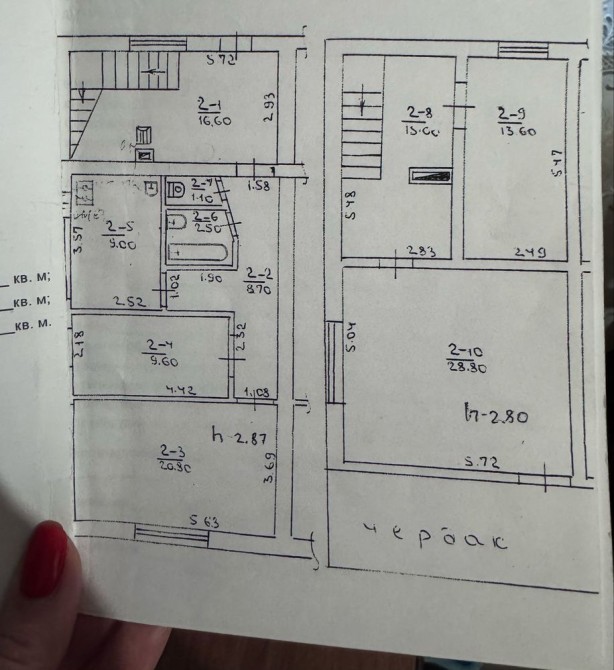 5.72
2-1
16.60
2.93
2-7
1.10
1.58
2-6
2.50
2-5
9.00
3.57
2.52
1.02
1.90
2-2
8.70
2-4
9.60
2.18
4.42
2.32
1.08
h-2.87
2-3
20.80
3.69
5.63
кв. м;
кв. м;
кв. м.
2-8
2-9
13.60
5.48
5.47
2.83
2.49
5.04
2-10
28.80
h-2.80
5.72
чердак